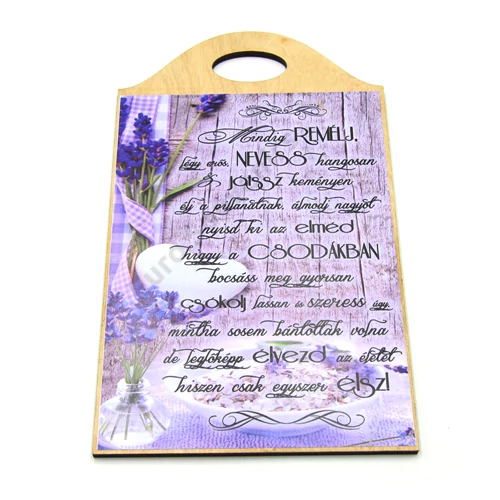 Mindig REMÉLJ,
légy erős, NEVESS hangosan
ÉS JÁTSSZ keményen
élj a pillanatnak, álmodj nagyot
nyisd ki az elméd
higgy a CSODÁKBAN
bocsáss meg gyorsan
CSÓKOLJ lassan és SZERESS úgy,
mintha sosem bántottak volna
de legfőképp élvezd az életet
hiszen csak egyszer élsz!